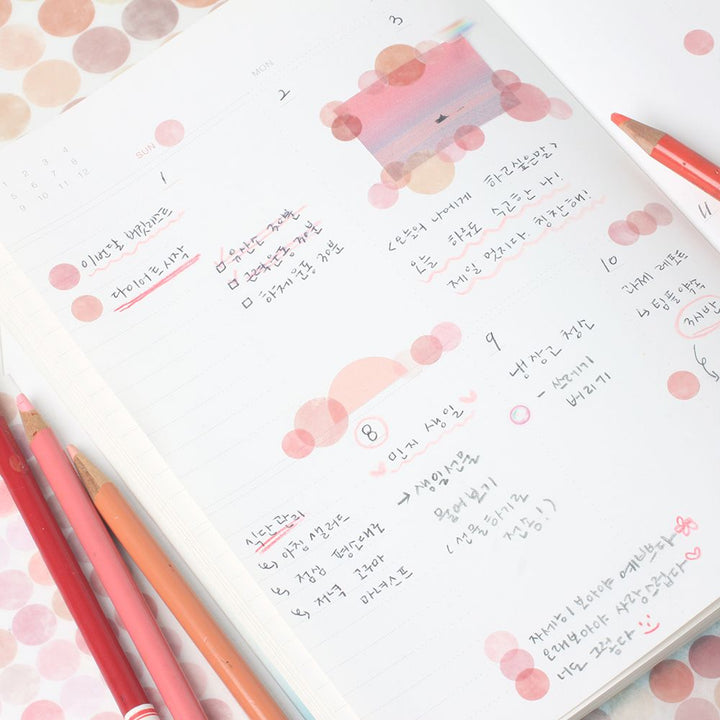 1 2 3 4
5 6 7 8
9 10 11 12
SUN
MON
1
2
3
이번달 버킷리스트
다이어트 시작
유산소 30분
근력운동 30분
하체운동 30분
<오늘의 나에게 하고싶은말>
오늘 하루도 수고한 나!
제일 멋지다. 칭찬해!
8
민지 생일
→ 생일선물
물어보기
(선물하기로
전송!)
9
냉장고 청소
- 쓰레기
버리기
10
과제 레포트
↳ 팀플약속
3시반
11
식단관리
↳ 아침 샐러드
↳ 점심 평소대로
↳ 저녁 고구마
마녀스프
자세히 보아야 예쁘다
오래보아야 사랑스럽다
너도 그렇다 :)